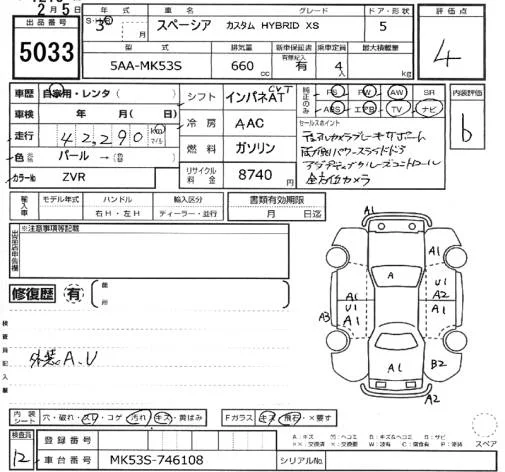 2月5日
出品番号
5033
年式 車名 グレード ドア・形状 評価点
S・H・R 3年 月 スペーシア カスタム HYBRID XS 5 4
型式 排気量 新車保証書 有無記入 乗車定員 最大積載量
5AA-MK53S 660 cc 有 4人 kg
車歴 自家用・レンタ( ) シフト インパネAT CVT 純正のみ PS PW AW SR 内装評価
車検 年 月( 日) 冷房 AAC ABS エアB TV ナビ b
走行 42,290 km マイル 燃料 ガソリン セールスポイント
デュアルカメラブレーキサポート
両側パワースライドドア
アダプティブクルーズコントロール
全方位カメラ
色 パール →( )
カラーNo ZVR リサイクル料金 8740円
輸入車 モデル年式 ハンドル 輸入区分 書類有効期限
右H・左H ディーラー・並行 月 日迄
出品店申告欄 ※注意事項等記載
修復歴 有 箇所
検査員記入欄
外装A.U
A1
A1
A
A1 U1 A1
U1 A2 A1
A3
A1
B2
A2
内装シート 穴・破れ・スレ・コゲ 汚れ・キズ・黄ばみ Fガラス キズ・飛石・×要す
A:キズ U:ヘコミ B:キズ&ヘコミ S:サビ
××:交換済 ×:交換要 W:波有 C:腐食有 P:塗装
スペア
検査員 12
登録番号
車台番号 MK53S-746108 シリアルNo.